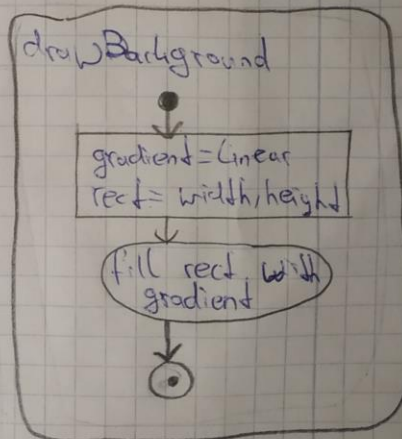 drawBackground
gradient=Linear
rect= width,height
fill rect with
gradient